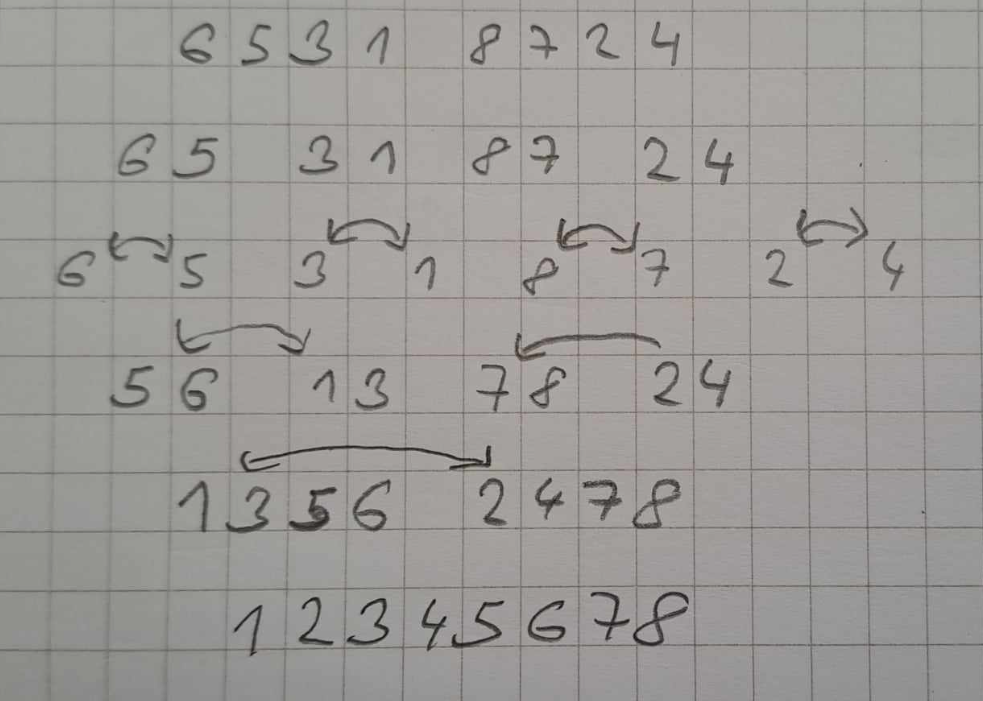 6 5 3 1 8 7 2 4
6 5 3 1 8 7 2 4
6 5 3 1 8 7 2 4
5 6 1 3 7 8 2 4
1 3 5 6 2 4 7 8
1 2 3 4 5 6 7 8